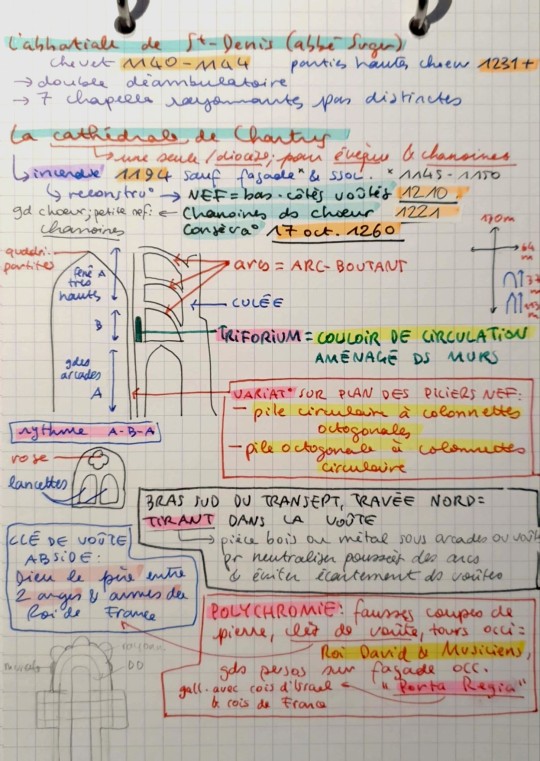 L'abbatiale de St-Denis (abbé Suger)
chevet 1140-1144 parties hautes chœur 1231+
→ double déambulatoire
→ 7 chapelles rayonnantes pas distinctes
La cathédrale de Chartres
une seule/diocèse; pour évêque & chanoines
incendie 1194 sauf façade* & ssol. *1145-1150
reconstru° → NEF = bas-côtés voûtés 1210
gd chœur; petite nef: ← Chanoines ds chœur 1221
chanoines Conséçra° 17 oct. 1260
170m
64 m
quadri-partites
fenê A très hauts
arcs = ARC-BOUTANT
CULÉE
B
TRIFORIUM = COULOIR DE CIRCULATION
AMÉNAGÉ DS MURS
gdes arcades
A
VARIAT° SUR PLAN DES PILIERS NEF:
- pile circulaire à colonnettes
octogonales
- pile octogonale à colonnettes
circulaire
rythme A-B-A
rose
lancettes
BRAS SUD DU TRANSEPT, TRAVÉE NORD =
TIRANT DANS LA VOÛTE
pièce bois ou métal sous arcades ou voûte
pr neutraliser poussée des arcs
& éviter écartement ds voûtes
CLÉ DE VOÛTE
ABSIDE:
Dieu le père entre
2 anges & armes du
Roi de France
POLYCHROMIE: fausses coupes de
pierre, clés de voûte, tours occi =
Roi David & Musiciens,
gds persos sur façade occ.
gall. avec rois d'Israel ← "Porta Regia"
& rois de France
DD